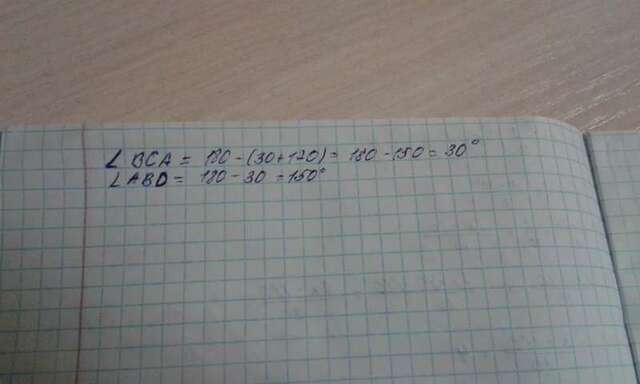 ∠ BCA = 180 - (30 + 120) = 180 - 150 = 30°
∠ ABD = 180 - 30 = 150°